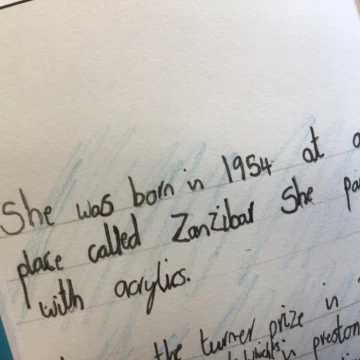 She was born in 1954 at a
place called Zanzibar She
with acrylics.
the turner prize in
in preston